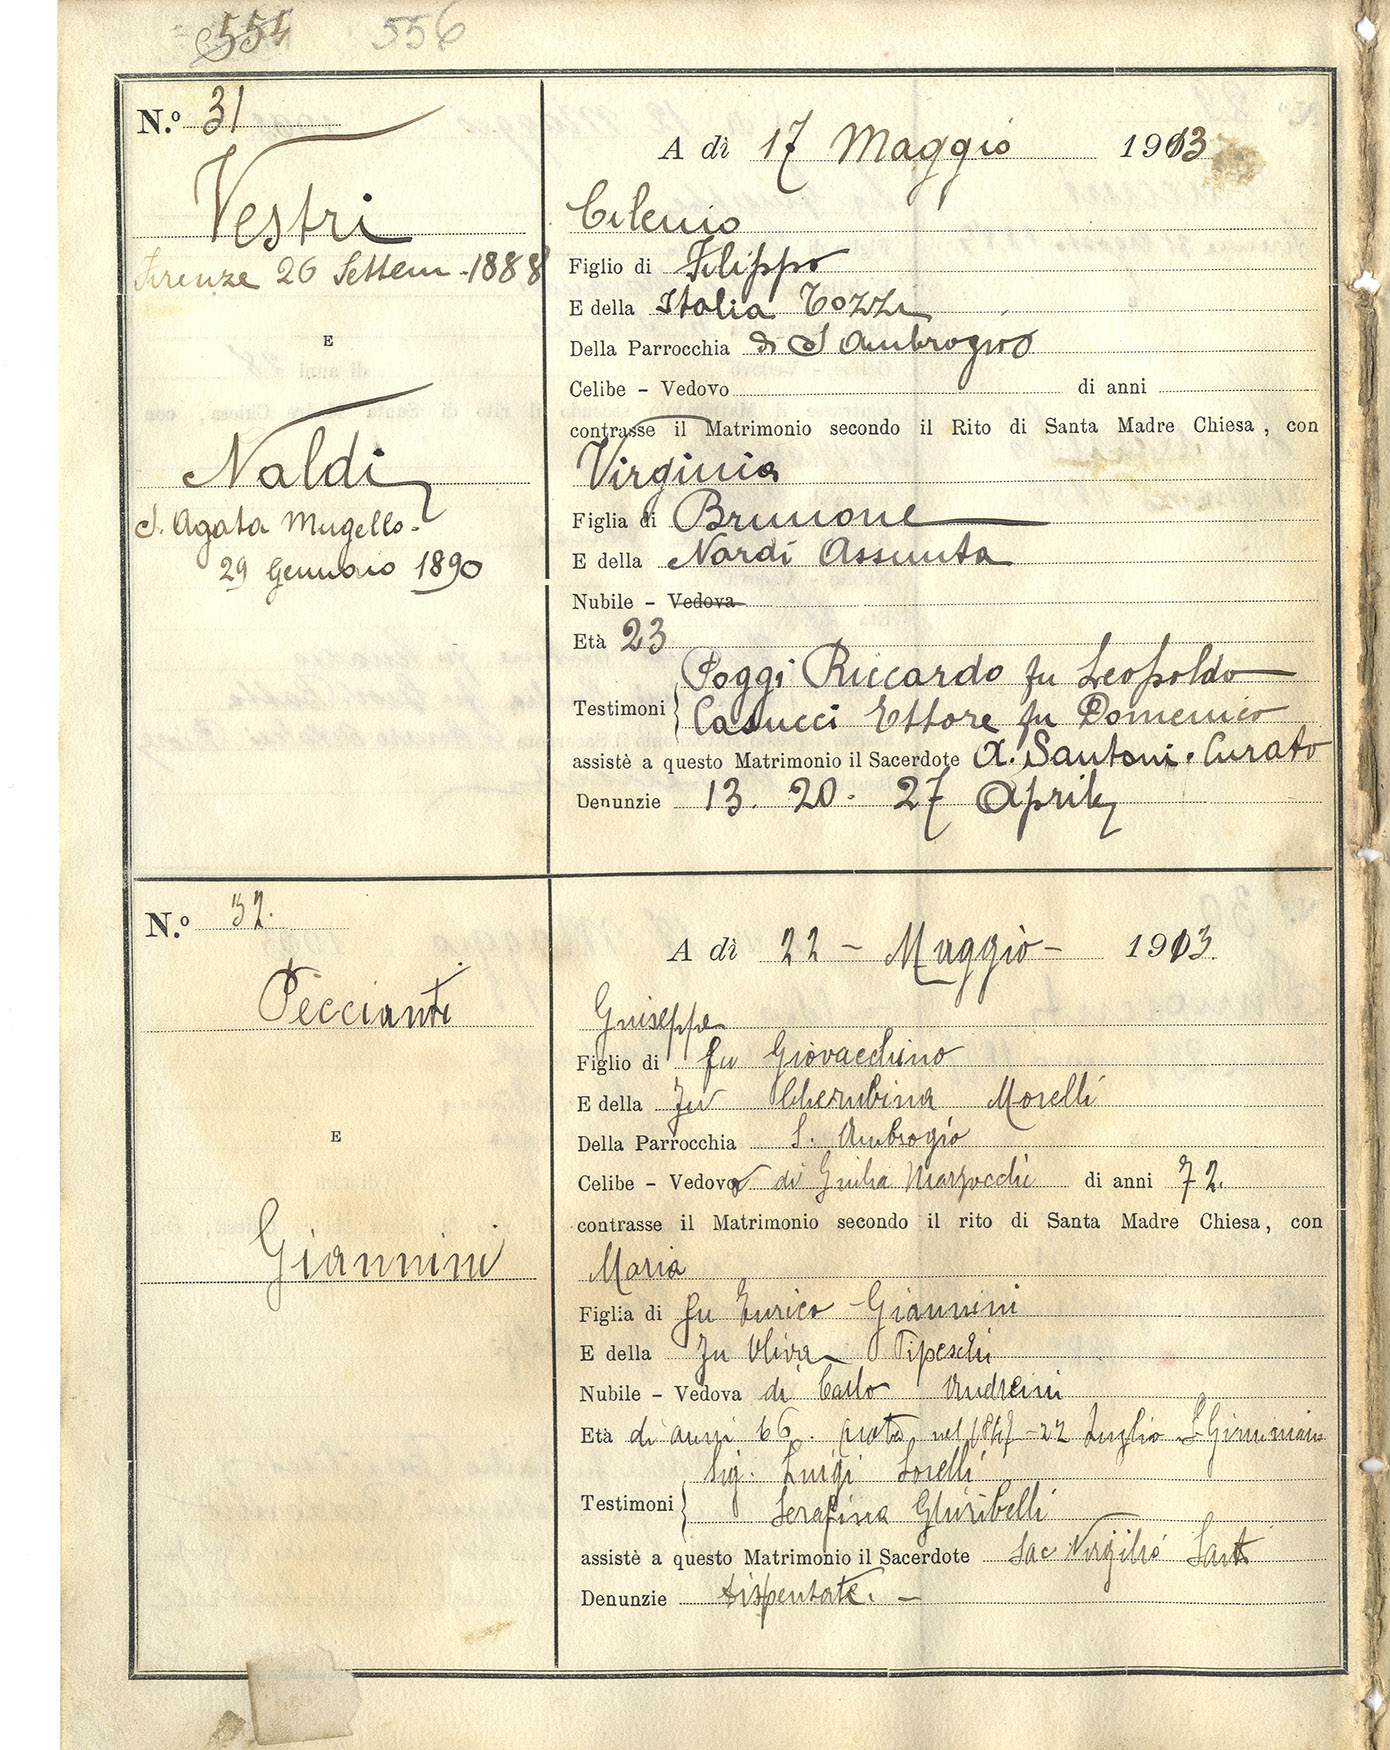 554 556
N.º 31
Vestri
Firenze 26 Settem - 1888
E
Naldi
S. Agata Mugello -
29 Gennaio 1890
A dì 17 Maggio 1913
Figlio di Filippo
E della Italia Tozzi
Della Parrocchia di S Ambrogio
Celibe - Vedovo di anni
contrasse il Matrimonio secondo il Rito di Santa Madre Chiesa, con
Virginia
Figlia di Brunone
E della Nardi Assunta
Nubile - Vedova
Età 23
Testimoni } Poggi Riccardo fu Leopoldo
Casucci Ettore fu Domenico
assistè a questo Matrimonio il Sacerdote A. Santoni. Curato
Denunzie 13. 20. 27 Aprile
N.º 32.
Peccianti
E
Giannini
A dì 22 - Maggio - 1913.
Giuseppe
Figlio di fu Giovacchino
E della fu Cherubina Morelli
Della Parrocchia S. Ambrogio
Celibe - Vedovo di Giulia Marzocchi di anni 72.
contrasse il Matrimonio secondo il rito di Santa Madre Chiesa, con
Maria
Figlia di fu Enrico Giannini
E della fu Oliva
Nubile - Vedova di Carlo Andreini
Età di anni 66. nata nel 1847 - 22 Luglio
Sig. Luigi
Testimoni } Serafina Ghiribelli
assistè a questo Matrimonio il Sacerdote Sac Virgilio
Denunzie dispensate. -